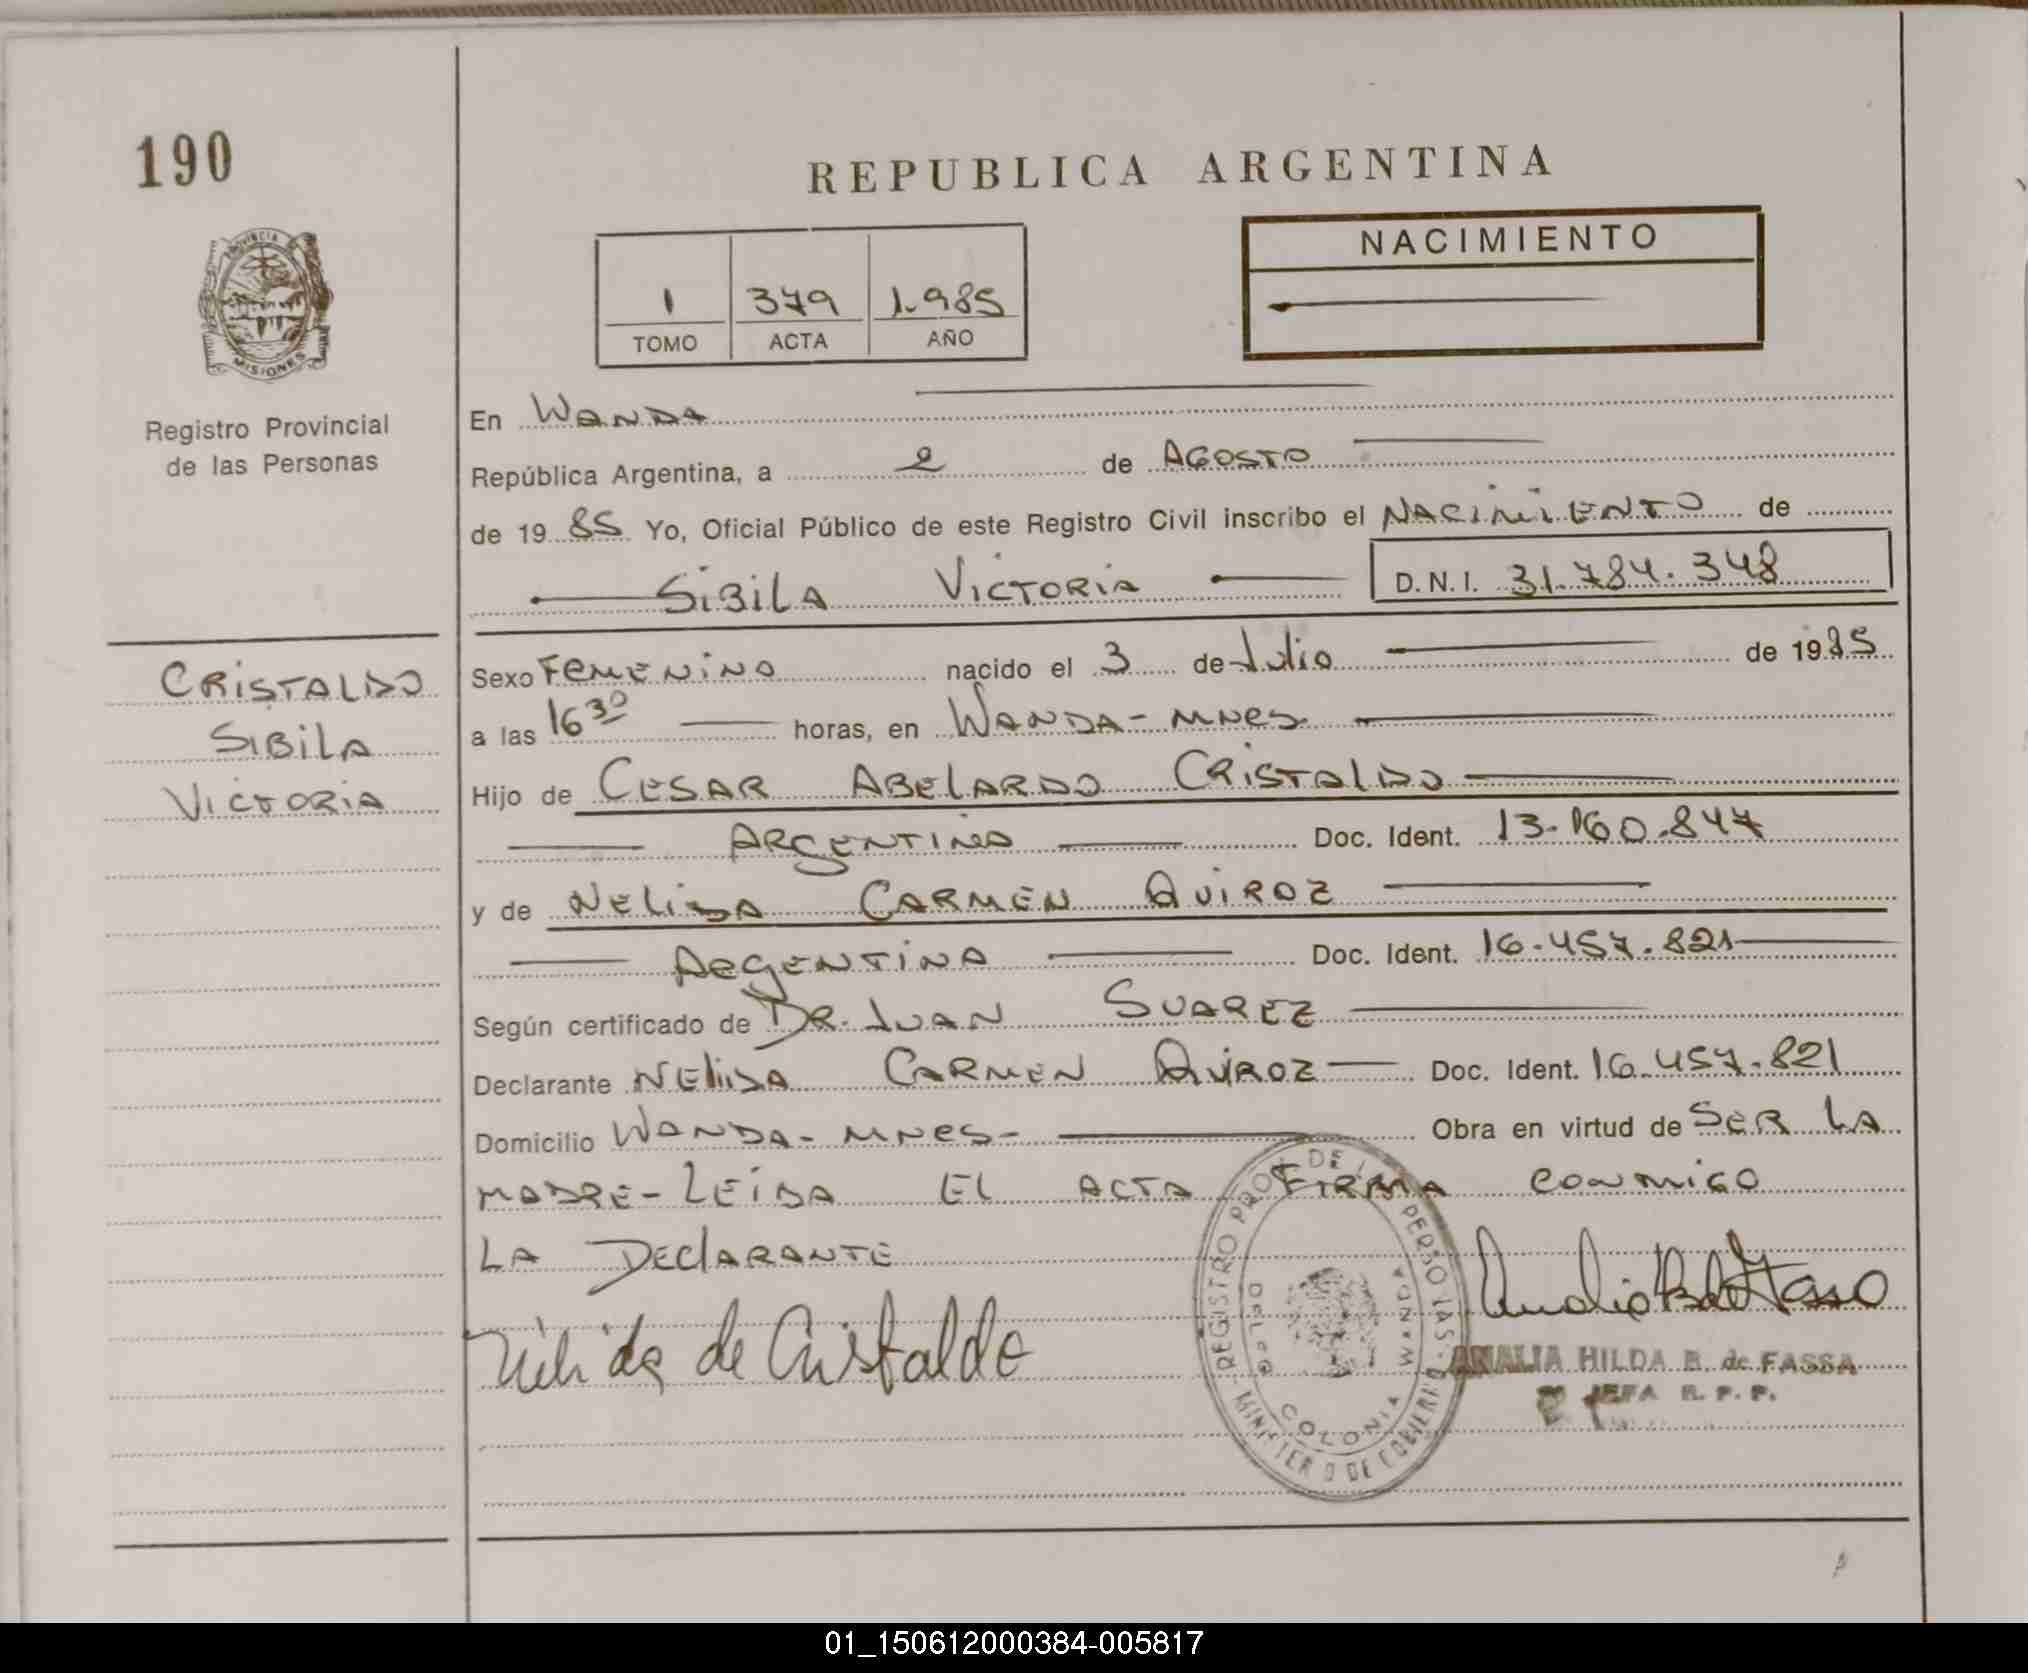 190
REPUBLICA ARGENTINA
PROVINCIA
MISIONES
1 379 1.985
TOMO ACTA AÑO
NACIMIENTO
Registro Provincial
de las Personas
CRISTALDO
SIBILA
VICTORIA
En WANDA
República Argentina, a 2 de AGOSTO
de 19 85 Yo, Oficial Público de este Registro Civil inscribo el NACIMIENTO de
SIBILA VICTORIA D.N.I. 31.784.348
Sexo FEMENINO nacido el 3 de Julio de 1985
a las 16 30 horas, en WANDA - MNES
Hijo de CESAR ABELARDO CRISTALDO
ARGENTINO Doc. Ident. 13.160.847
y de NELIDA CARMEN QUIROZ
ARGENTINA Doc. Ident. 16.457.821
Según certificado de DR. JUAN SUAREZ
Declarante NELIDA CARMEN QUIROZ Doc. Ident. 16.457.821
Domicilio WANDA - MNES - Obra en virtud de SER LA
MADRE - LEIDA EL ACTA FIRMA CONMIGO
LA DECLARANTE
Nélida de Cristaldo
REGISTRO PROV. DE LAS PERSONAS - MINISTERIO DE GOBIERNO
COLONIA WANDA
ANALIA HILDA B. de FASSA
JEFA R. P. P.
01_150612000384-005817